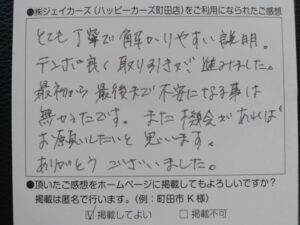 ●㈱ジェイカーズ(ハッピーカーズ町田店)をご利用になられたご感想
とても丁寧で解かりやすい説明。
テンポ良く取り引きが進みました。
最初から最後まで不安になる事は
無かったです。また機会があれば
お願いしたいと思います。
ありがとうございました。
●頂いたご感想をホームページに掲載してもよろしいですか？
掲載は匿名で行います。(例：町田市 K 様)
☑掲載してよい □掲載不可